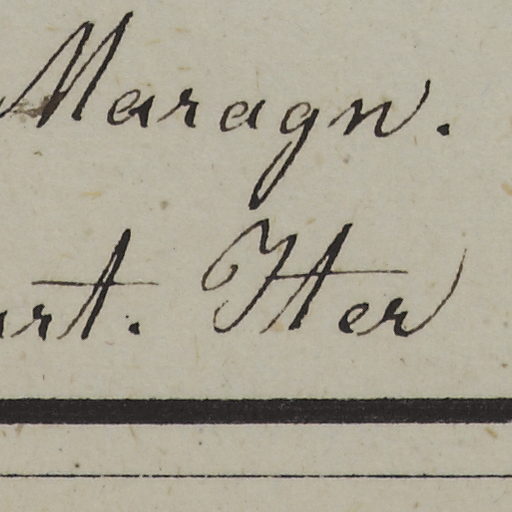 Maragn.
art. Iter